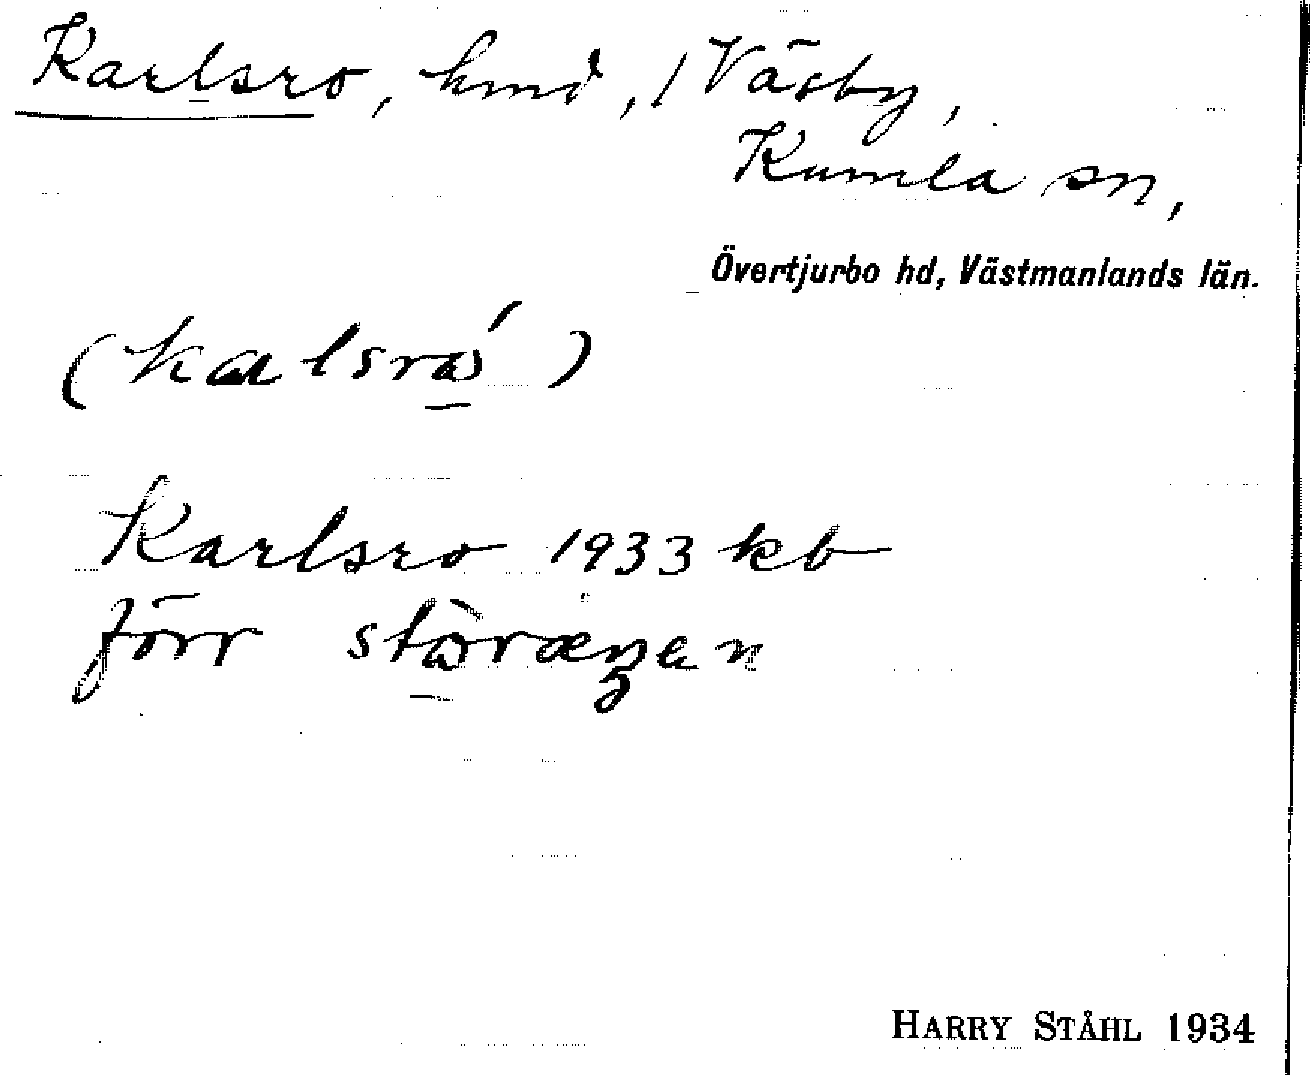 Karlsro, hmd, 1 Väsby,
Kumla sn,
Övertjurbo hd, Västmanlands län.
(kalsrώ̱)
Karlsro 1933 kb
förr stὼ̱ræŋen
HARRY STÅHL 1934